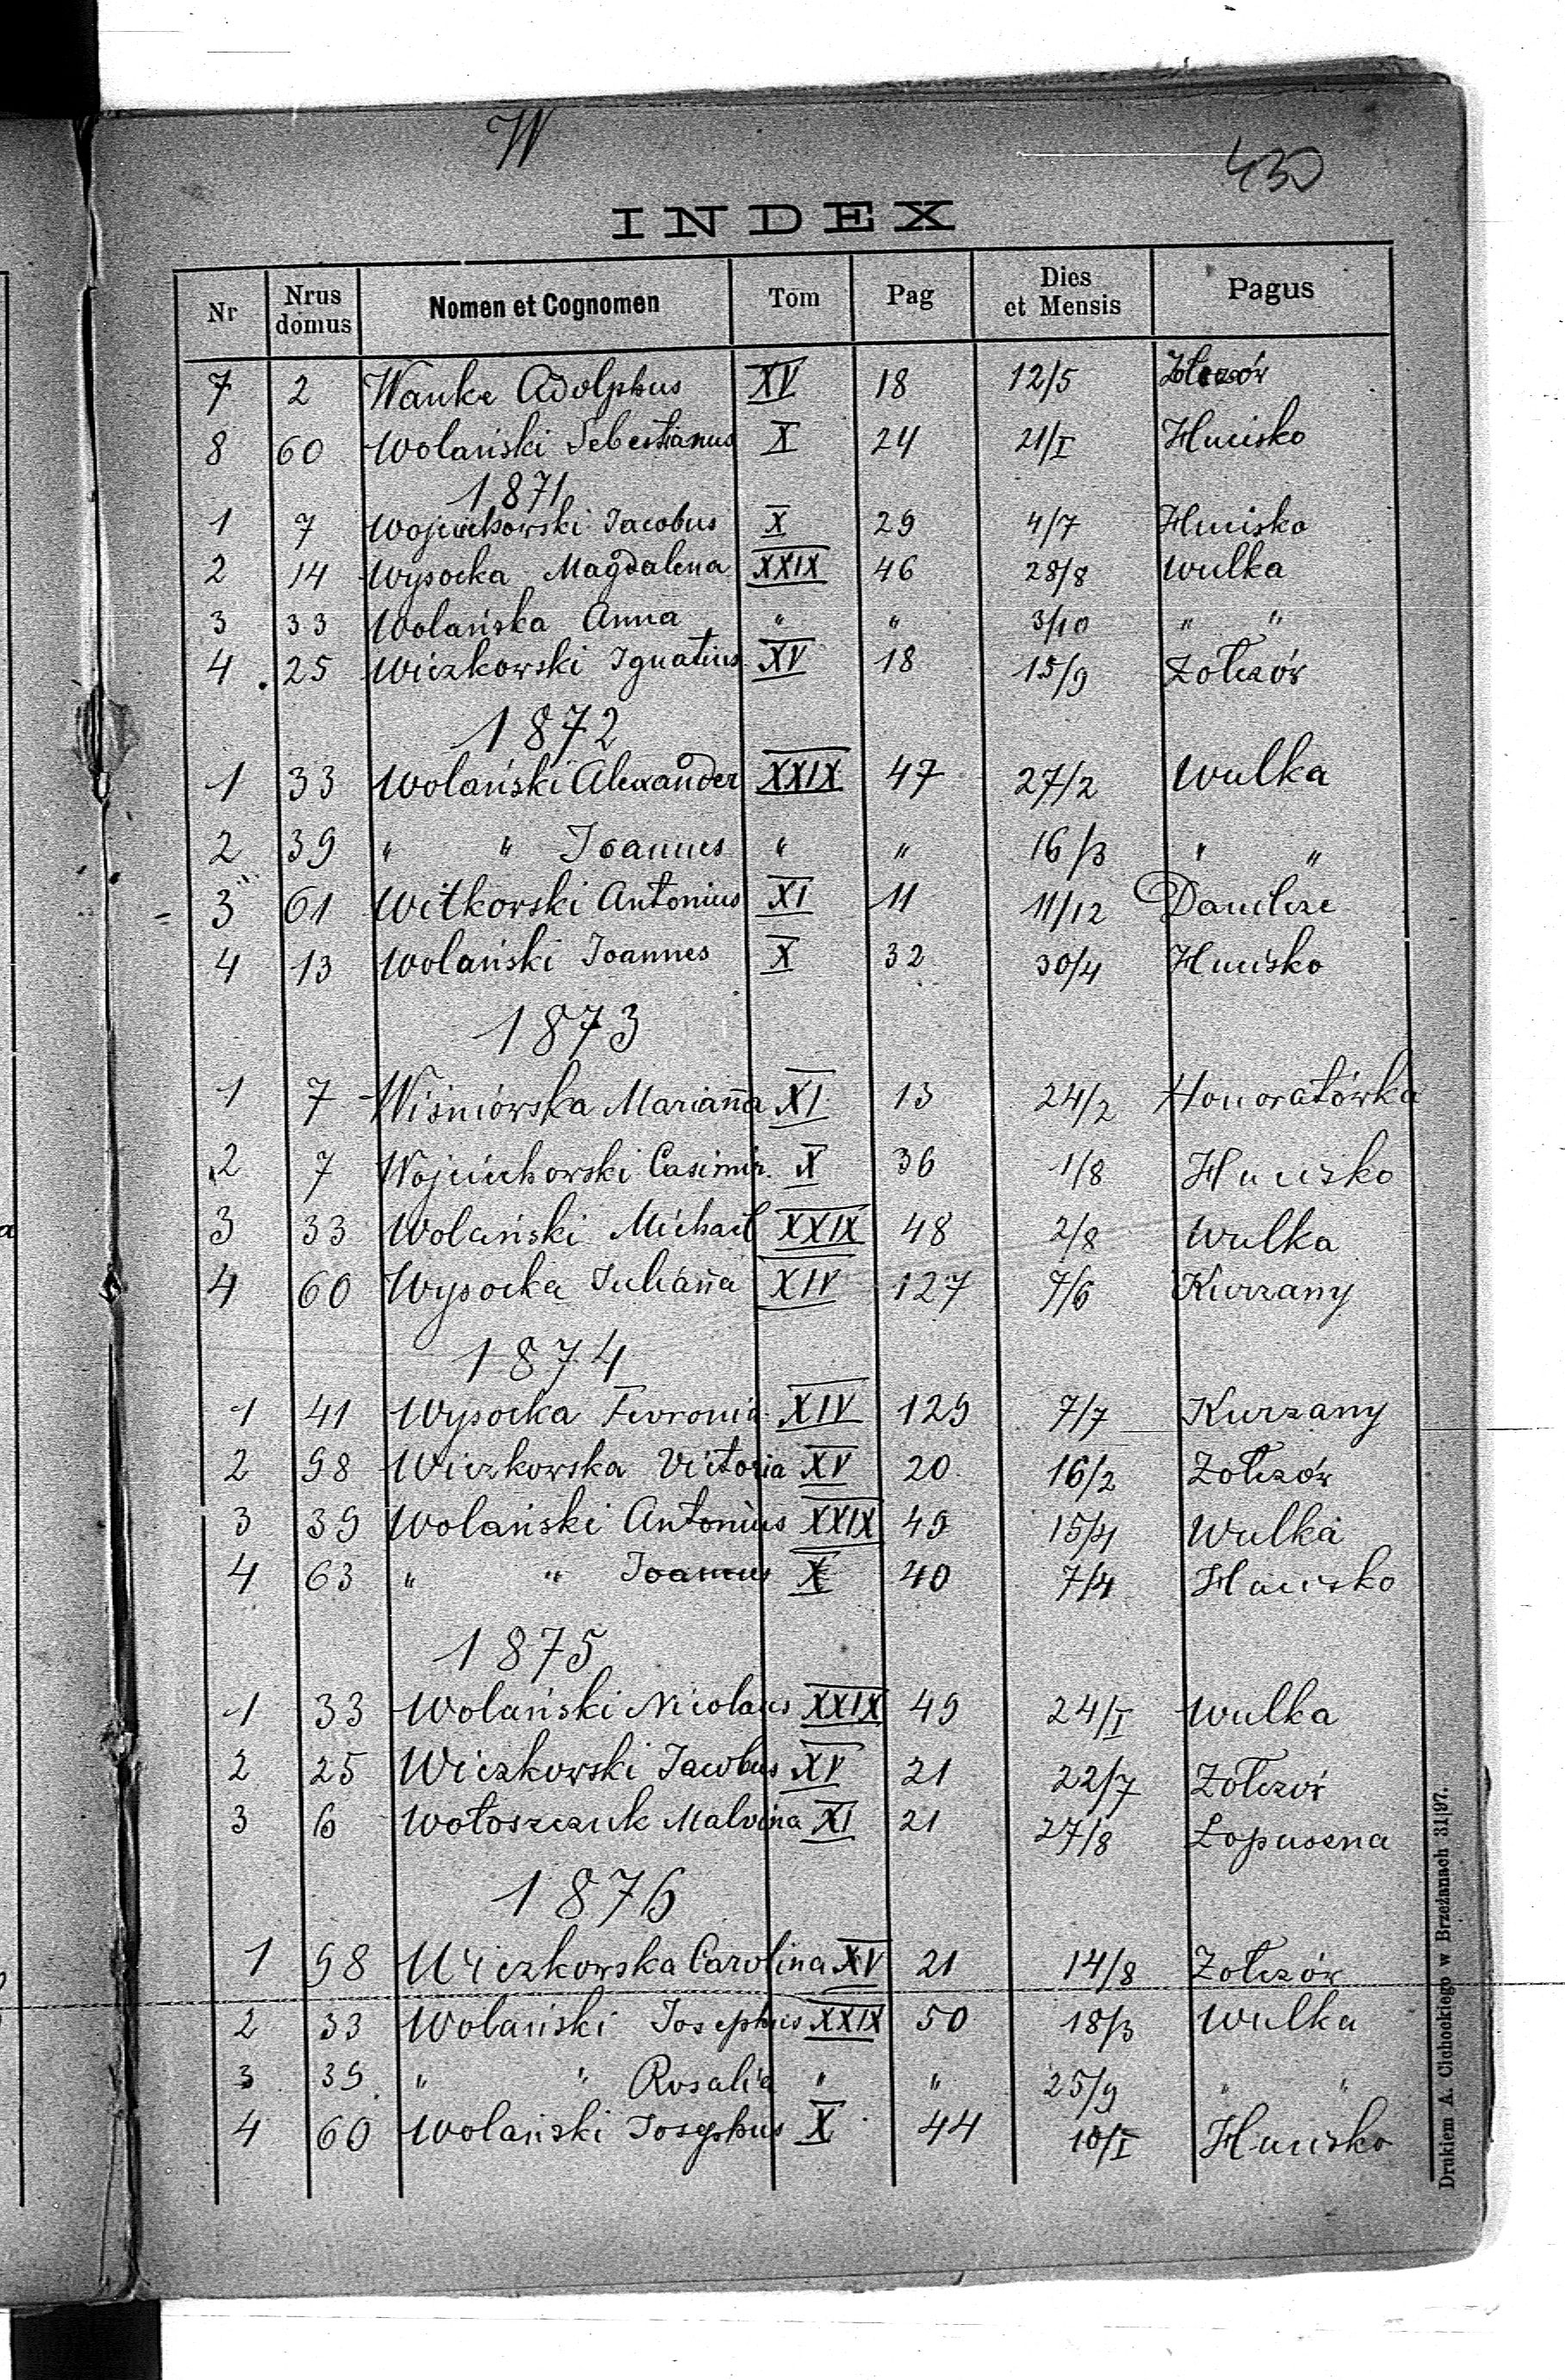 W
430
INDEX
Nr Nrus domus Nomen et Cognomen Tom Pag Dies et Mensis Pagus
7 2 Wanke Adolphus XV 18 12/5 Żołczów
8 60 Wolański Sebestianus X 24 21/I Hucisko
1871
1 7 Wojciechowski Jacobus X 29 4/7 Hucisko
2 14 Wysocka Magdalena XXIX 46 28/8 Wulka
3 33 Wolańska Anna " " 3/10 " "
4 25 Wiczkowski Ignatius XV 18 15/9 Żołczów
1872
1 33 Wolański Alexander XXIX 47 27/2 Wulka
2 39 " " Joannes " " 16/3 " "
3 61 Witkorski Antonius XI 11 11/12 Danilcze
4 13 Wolański Joannes X 32 30/4 Hucisko
1873
1 7 Wiśniówska Marianna XI 13 24/2 Honoratówka
2 7 Wojciechowski Casimir. X 36 1/8 Hucisko
3 33 Wolański Michael XXIX 48 2/8 Wulka
4 60 Wysocka Julianna XIV 127 7/6 Kurzany
1874
1 41 Wysocka Fevronia XIV 129 7/7 Kurzany
2 98 Wiczkowska Victoria XV 20 16/2 Żołczów
3 39 Wolański Antonius XXIX 49 15/4 Wulka
4 63 " " Joannes X 40 7/4 Hucisko
1875
1 33 Wolański Nicolaus XXIX 49 24/I Wulka
2 25 Wiczkowski Jacobus XV 21 22/7 Żołczów
3 6 Wołoszczuk Malvina XI 21 27/8 Łopuszna
1876
1 98 Wiczkowska Carolina XV 21 14/8 Żołczów
2 33 Wolański Josephus XXIX 50 18/3 Wulka
3 39 " " Rosalia " " 25/9 " "
4 60 Wolański Josephus X 44 10/I Hucisko
Drukiem A. Cichockiego w Brzeżanach 31|97.